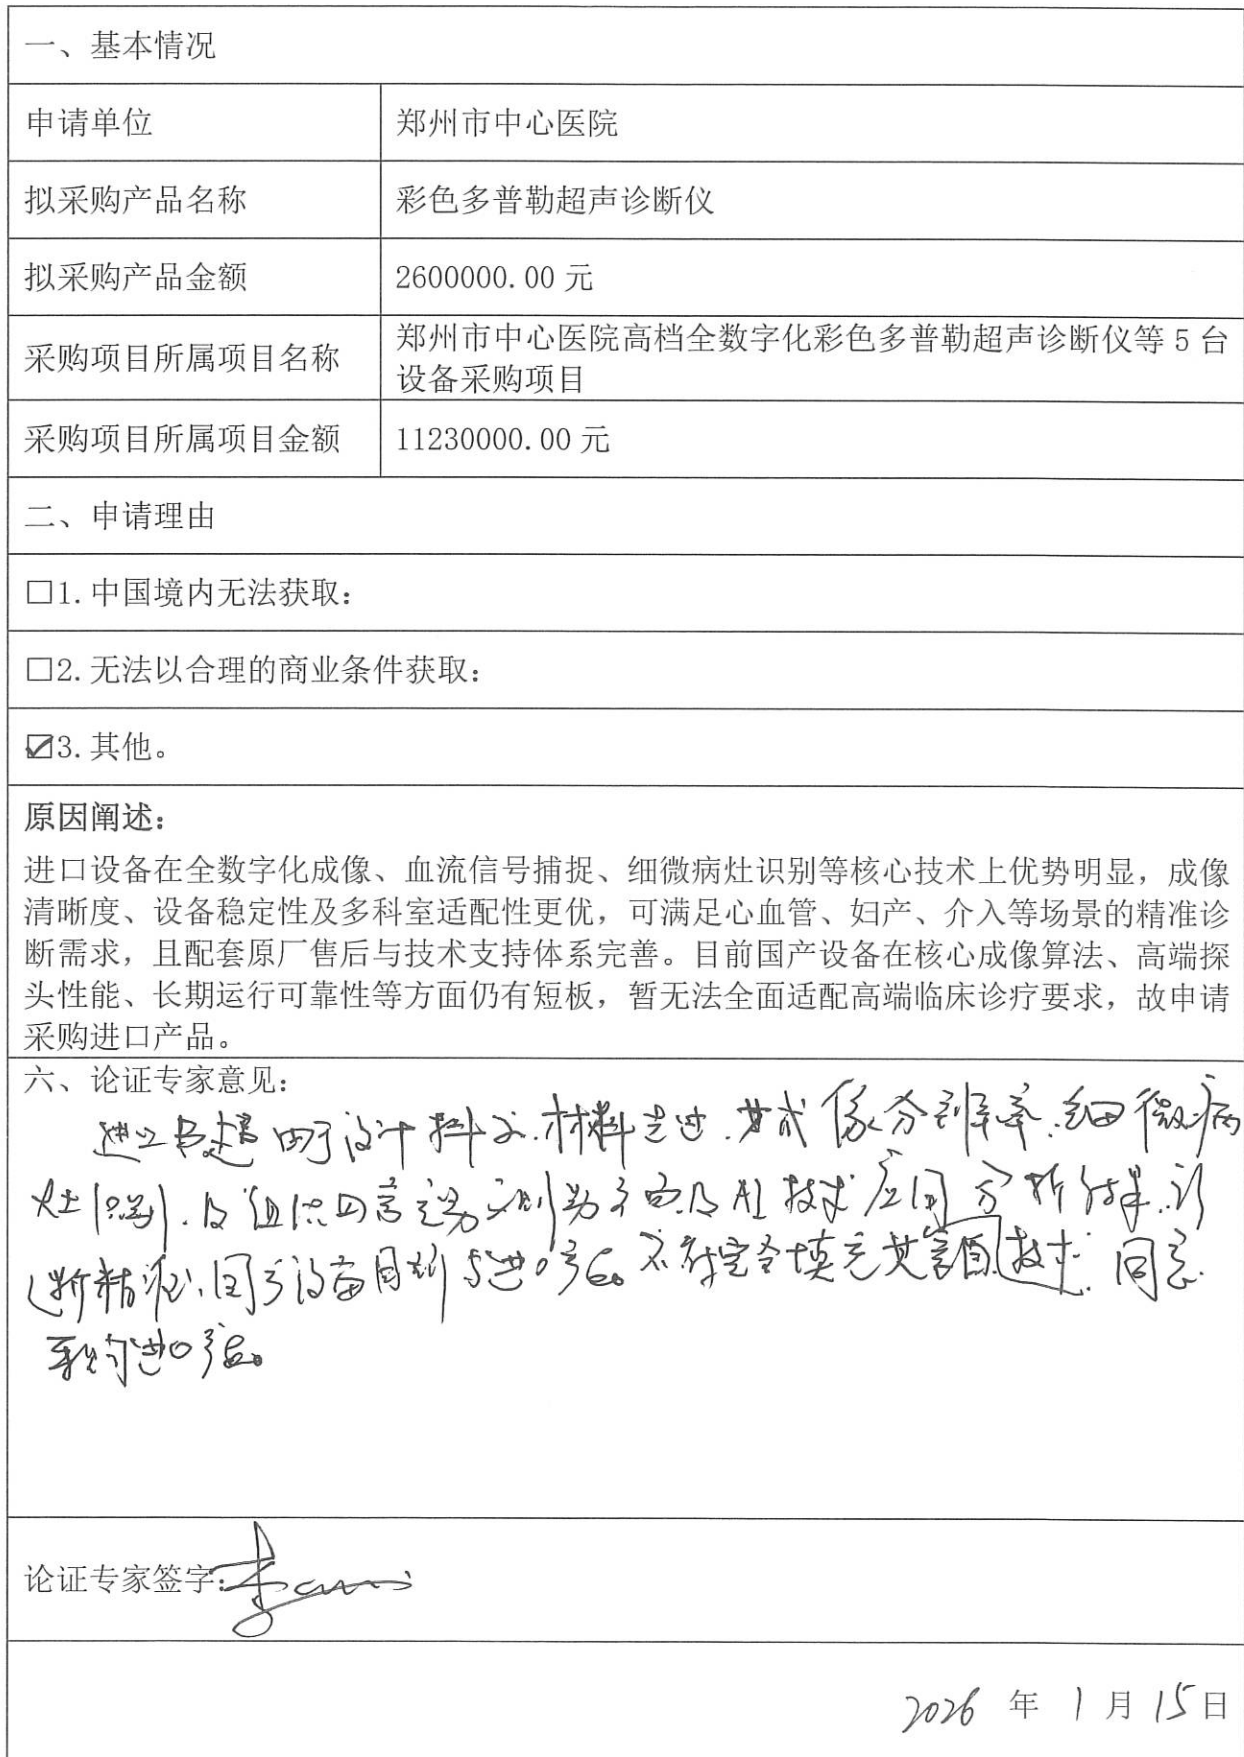 一、基本情况
申请单位 郑州市中心医院
拟采购产品名称 彩色多普勒超声诊断仪
拟采购产品金额 2600000.00 元
采购项目所属项目名称 郑州市中心医院高档全数字化彩色多普勒超声诊断仪等 5 台
设备采购项目
采购项目所属项目金额 11230000.00 元
二、申请理由
□1. 中国境内无法获取：
□2. 无法以合理的商业条件获取：
☑3. 其他。
原因阐述：
进口设备在全数字化成像、血流信号捕捉、细微病灶识别等核心技术上优势明显，成像
清晰度、设备稳定性及多科室适配性更优，可满足心血管、妇产、介入等场景的精准诊
断需求，且配套原厂售后与技术支持体系完善。目前国产设备在核心成像算法、高端探
头性能、长期运行可靠性等方面仍有短板，暂无法全面适配高端临床诊疗要求，故申请
采购进口产品。
六、论证专家意见：
由于设计科学.材料先进.其成像分辨率.细微病
灶识别.及 AI技术应用分析结果.诊
断精准、国产设备目前与进口产品 不能完全填充其 技术.同意
采购进口产品。
论证专家签字：
2026 年 1 月 15 日